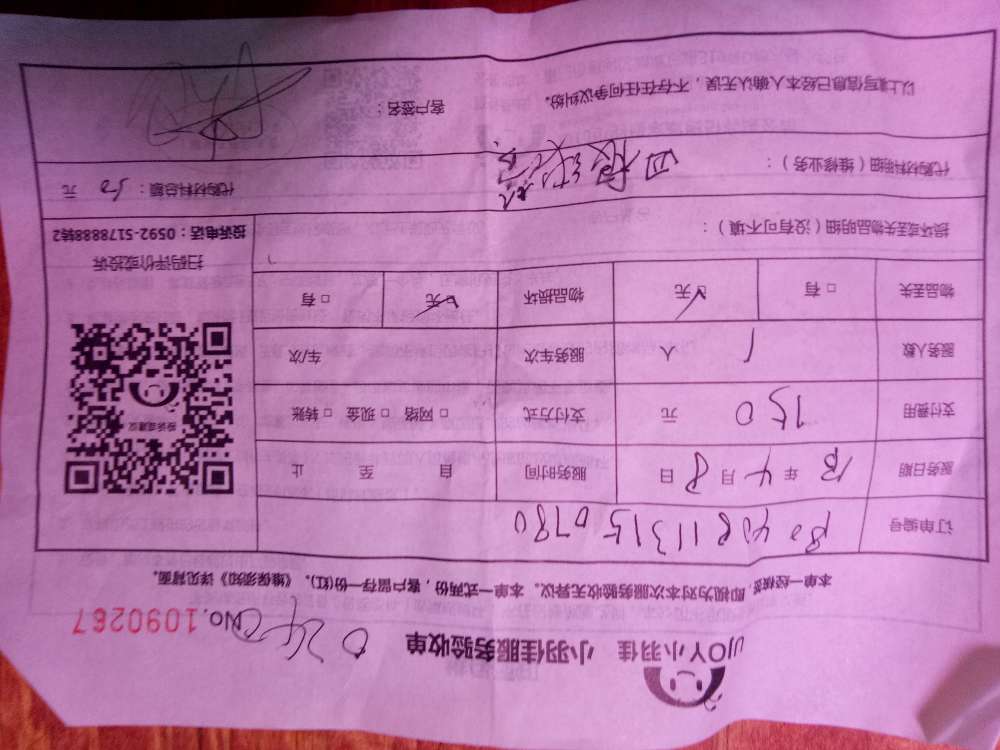 UJOY小羽佳 小羽佳服务验收单 No. 1090267
本单一经核签,即视为对本次服务验收无异议。本单一式两份,客户留存一份(红)。《维保须知》详见背面。
订单编号 180408113150780
服务日期 18年4月8日 服务时间 自 至 止
支付费用 150 元 支付方式 □网络 □现金 □转账
服务人数 1 人 服务车次 车/次
物品丢失 □有 ☑无 物品损坏 ☑无 □有
投诉或建议
扫码评价或投诉
投诉电话:0592-5178888转2
损坏或丢失物品明细(没有可不填):
代购材料明细(维修业务):四根
代购材料总额:50 元
以上填写信息已经本人确认无误,不存在任何争议纠纷。
客户签名: